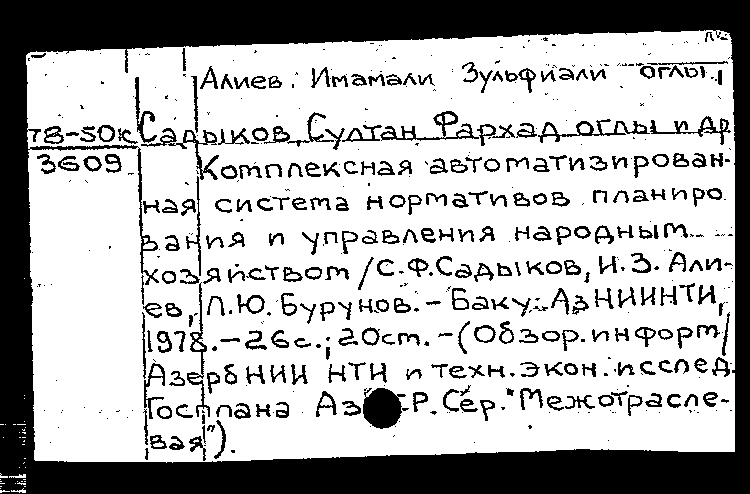 Алиев. Имамали Зульфиали оглы.,
78-50к Садыков, Султан Фархад оглы и др
3609 Комплексная автоматизирован-
ная система нормативов планиро
вания и управления народным
хозяйством / С.Ф.Садыков, И.З. Али-
ев, Л.Ю. Бурунов. – Баку: АзНИИНТИ,
1978. – 26 с.; 20 ст. – (Обзор. информ /
АзербНИИ НТИ и техн. экон. исслед.
Госплана Аз Р. Сер. "Межотрасле-
вая").